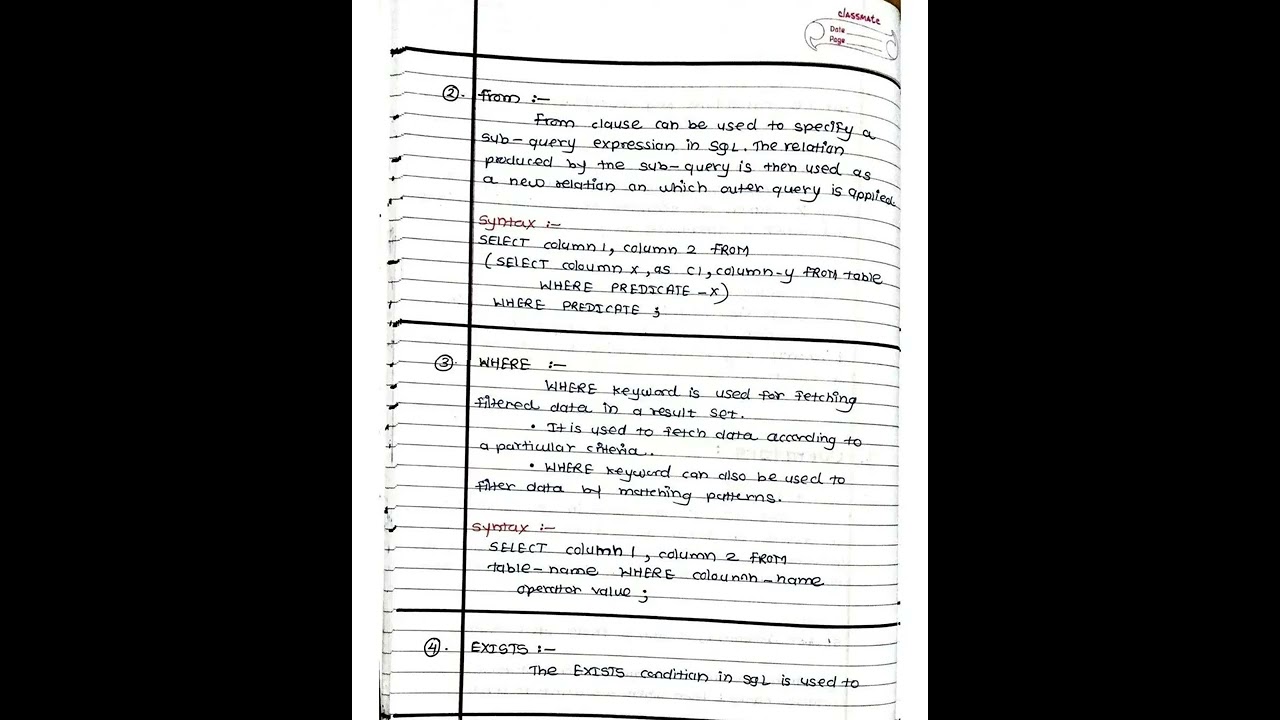 classmate
Date
Page
② . from :-
from clause can be used to specify a
sub-query expression in SQL. The relation
produced by the sub-query is then used as
a new relation on which outer query is applied.
Syntax :-
SELECT column 1, column 2 FROM
(SELECT coloumn x, as C1, column-y FROM table
WHERE PREDICATE - X)
WHERE PREDICATE ;
③ . WHERE :-
WHERE keyword is used for fetching
filtered data in a result set.
• It is used to fetch data according to
a particular criteria.
• WHERE keyword can also be used to
filter data by matching patterns.
Syntax :-
SELECT column 1, column 2 FROM
table-name WHERE coloumn-name
operator value ;
④ . EXISTS :-
The EXISTS condition in SQL is used to